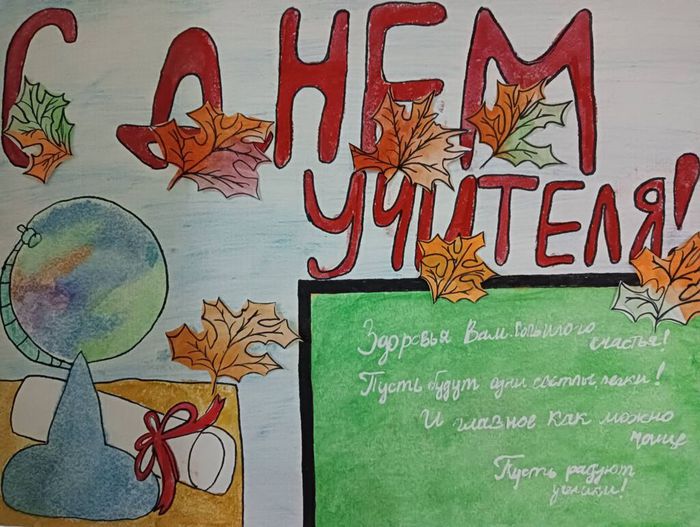 С ДНЕМ
УЧИТЕЛЯ!
Здоровья Вам, большого
счастья!
Пусть будут одни
И главное как можно
чаще
Пусть радуют
ученики!